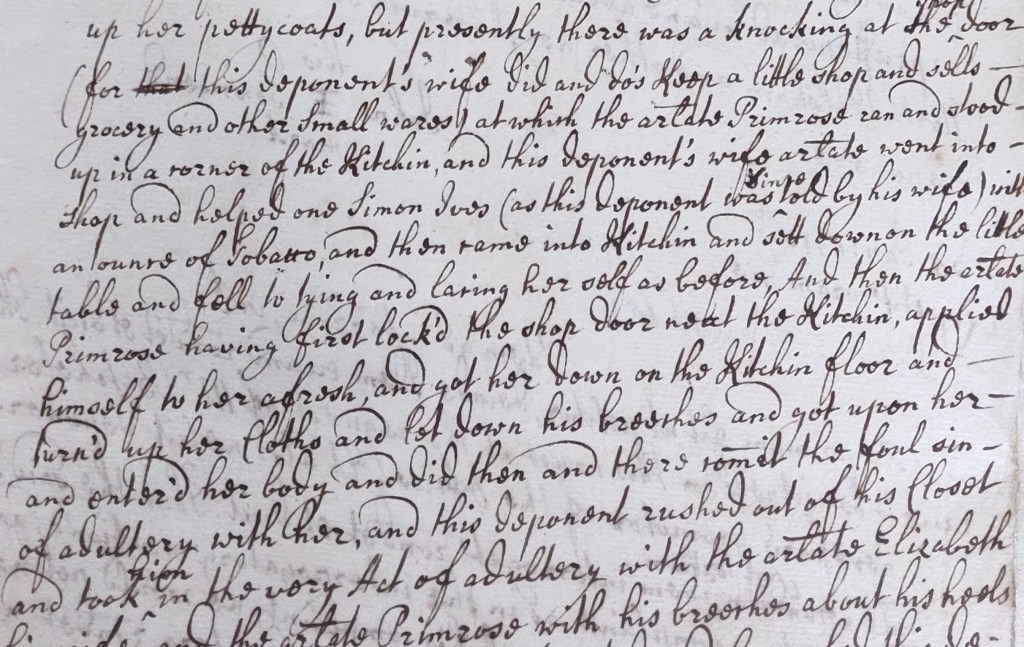 up her pettycoats, but presently there was a knocking at the shop door
(for that this deponent's wife did and do's keep a little shop and sells
grocery and other small wares) at which the artate Primrose ran and stood
up in a corner of the Kitchin, and this deponent's wife artate went into
shop and helped one Simon Ives (as this deponent was since told by his wife) with
an ounce of Tobacco, and then came into Kitchin and sett down on the little
table and fell to tying and lacing her self as before, And then the artate
Primrose having first lock'd the shop door next the Kitchin, applied
himself to her afresh, and got her down on the Kitchin floor and
turn'd up her Cloths and let down his breeches and got upon her
and enter'd her body and did then and there comit the foul sin
of adultery with her, and this deponent rushed out of his Closet
and took in the very Act of adultery with the artate Elizabeth
his wife and the artate Primrose with his breeches about his heels